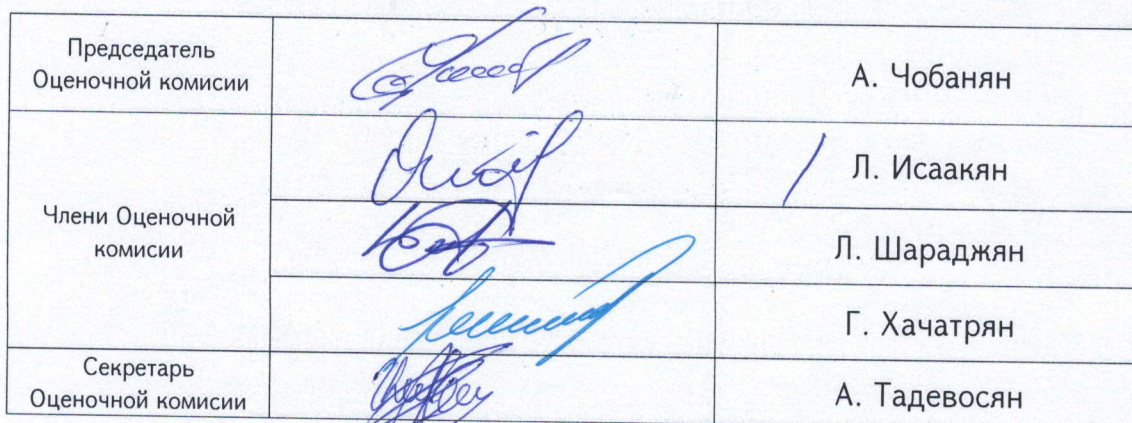 Председатель
Оценочной комисии
А. Чобанян
Члени Оценочной
комисии
Л. Исаакян
Л. Шараджян
Г. Хачатрян
Секретарь
Оценочной комисии
А. Тадевосян